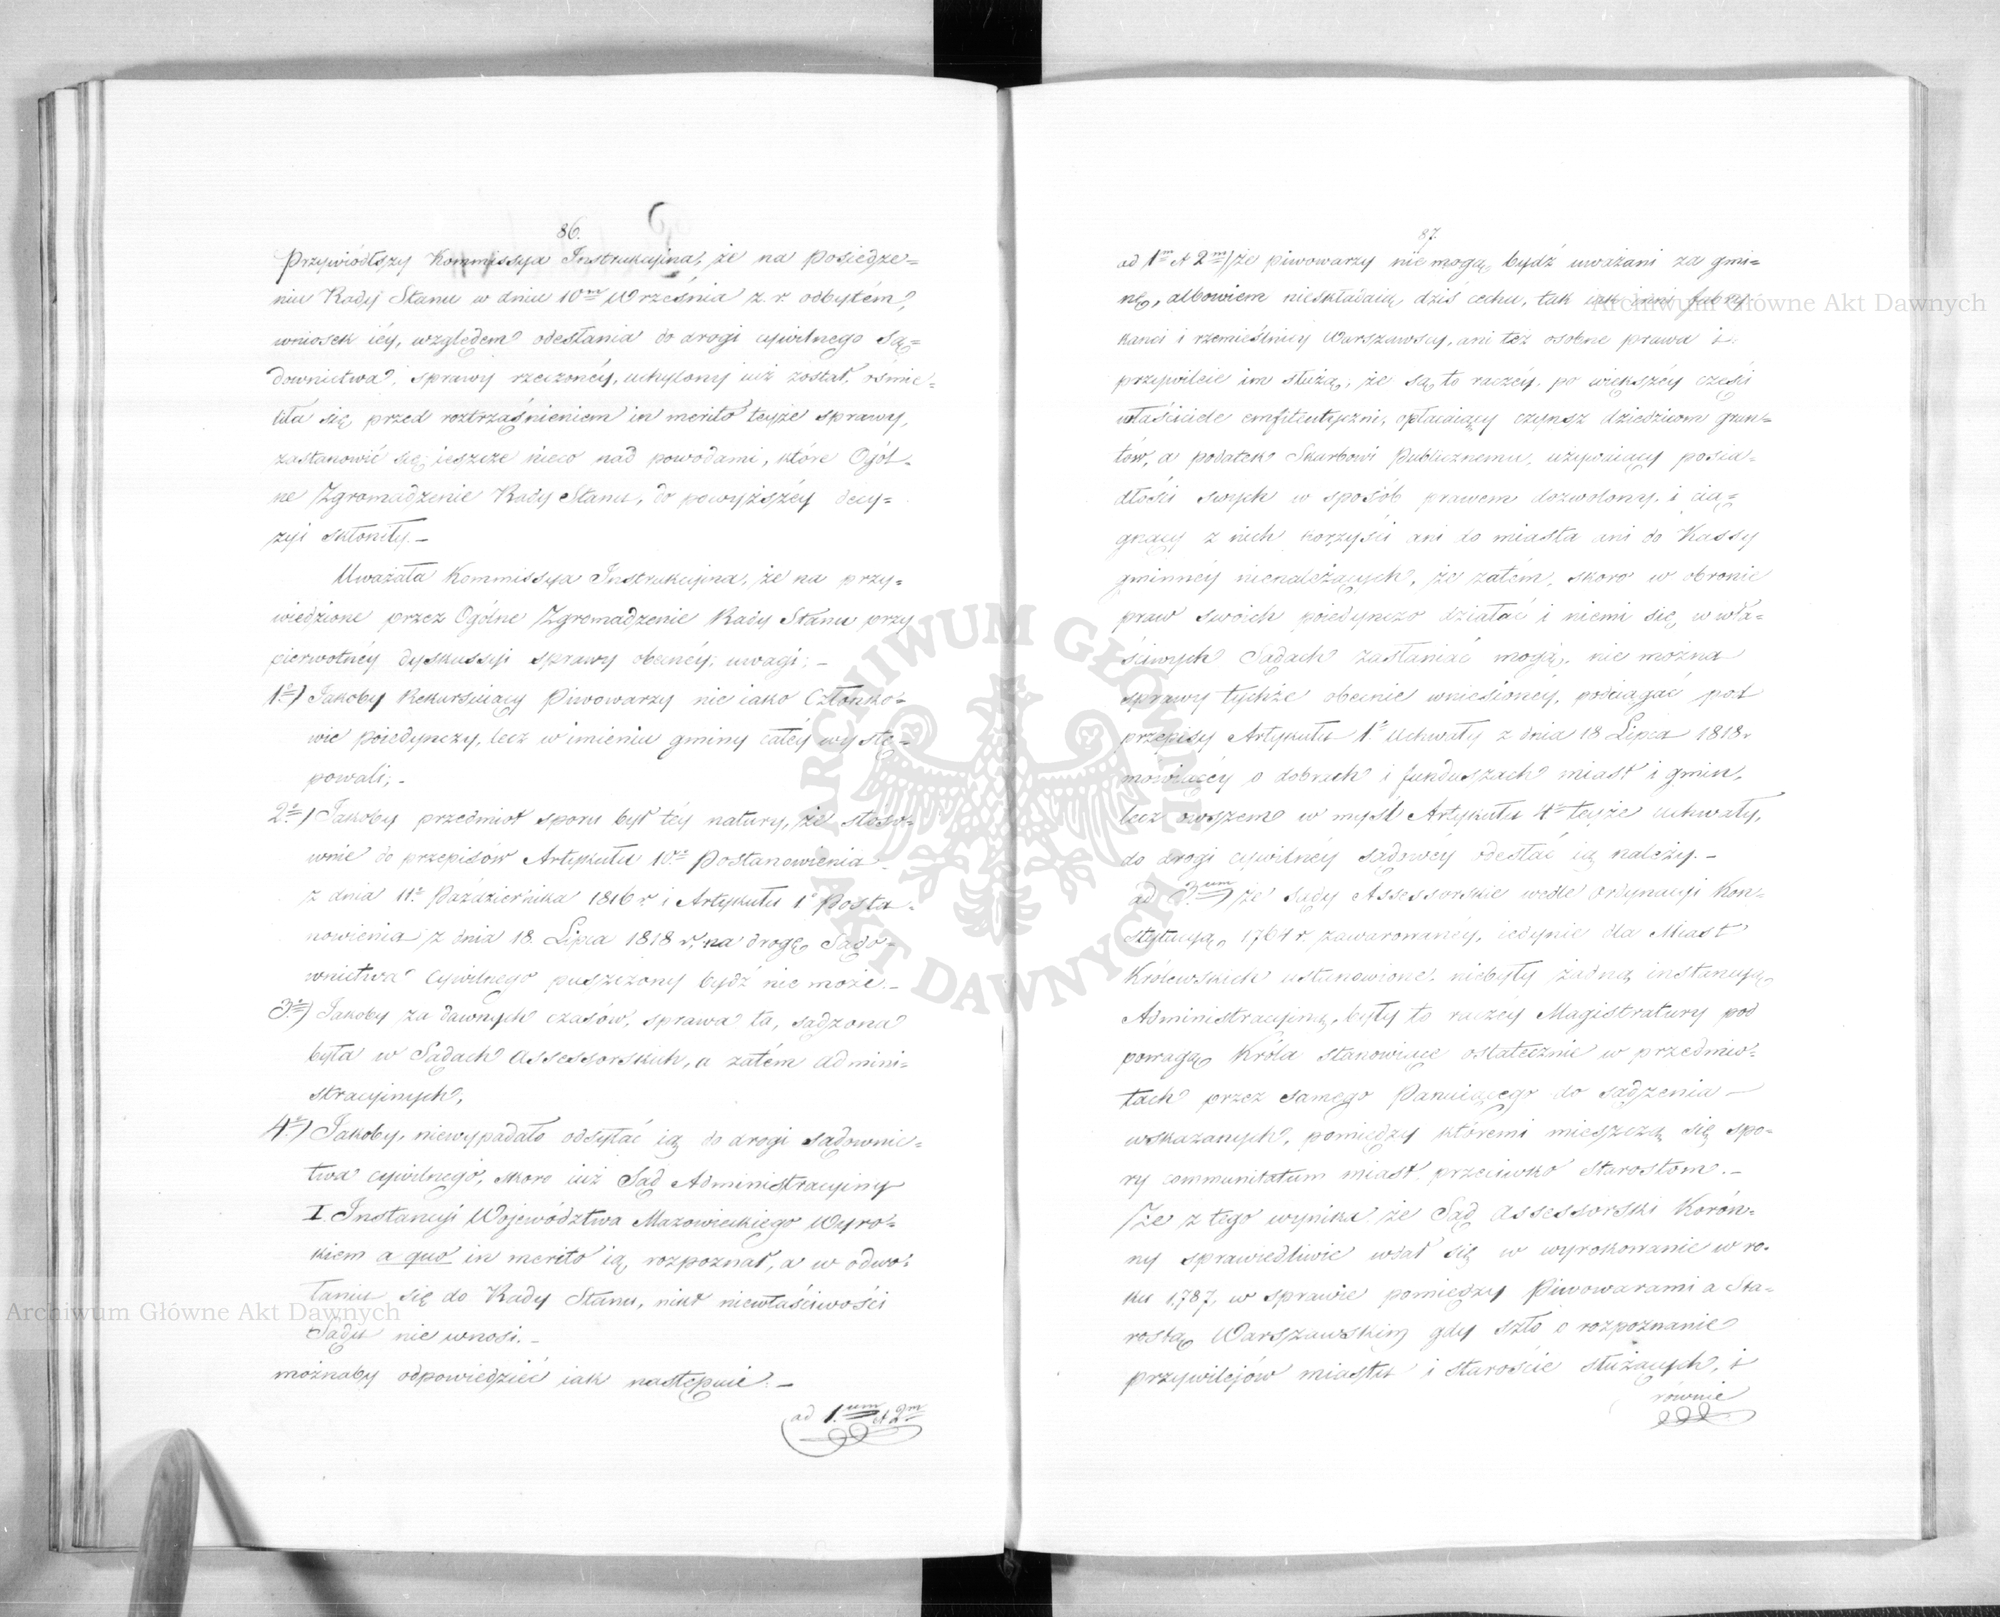 86.
Przywiódłszy Kommissya Instrukcyjna, że na posiedze=
niu Rady Stanu w dniu 10m Września z. r. odbytém,
wniosek iéy, względem odesłania do drogi cywilnego Są=
downictwa, sprawy rzeczonéy, uchylony już został, ośmie=
liła się, przed roztrząśnieniem in merito teyże sprawy,
zastanowić się ieszcze nieco nad powodami, które Ogól=
ne Zgromadzenie Rady Stanu, do powyższéy decy=
zyi skłoniły. –
Uważała Kommissya Instrukcyjna, że na przy=
wiedzione przez Ogólne Zgromadzenie Rady Stanu przy
pierwotnéy dyskussyi sprawy obecnéy, uwagi: –
1o) Jakoby Rekursuiący Piwowarzy nie iako Członko=
wie poiedynczy, lecz w imieniu gminy całéy wystę=
powali; –
2o) Jakoby przedmiot sporu był téy natury, że stóso=
wnie do przepisów Artykułu 10o Postanowienia
z dnia 11o Października 1816 r. i Artykułu 1o Posta=
nowienia z dnia 18. Lipca 1818 r, na drogę Sądo=
wnictwa Cywilnego puszczony bydź nie może. –
3o) Jakoby za dawnych czasów, sprawa ta, sądzona
była w Sądach Assessorskich, a zatém admini=
stracyinych,
4o) Jakoby, niewypadało odsyłać ią do drogi sądownic=
twa cywilnego, skoro iuż Sąd Administracyiny
I. Instancyi Województwa Mazowieckiego Wyro=
kiem a quo in merito ią rozpoznał, a w odwo=
łaniu się do Rady Stanu, nikt niewłaściwości
Sądu nie wnosi. –
możnaby odpowiedzieć iak następuie: –
ad 1.um et 2m
87.
ad 1m et 2m) że piwowarzy nie mogą bydź uważani za gmi=
nę, albowiem nieskładaią dziś cechu, tak iak inni fabry=
kanci i rzemieślnicy Warszawscy, ani też osobne prawa i
przywileie im służą; że są to raczéy po większéy części
właściciele emfiteutyczni, opłacaiący czynsz dziedzicom grun=
tów, a podatek Skarbowi Publicznemu, używaiący posia=
dłości swych w sposób prawem dozwolony, i cią=
gnący z nich korzyści ani do miasta ani do Kassy
gminnéy nienależących, że zatém, skoro w obronie
praw swoich poiedynczo działać i niemi się w wła=
ściwych Sądach zasłaniać mogą, nie można
sprawy tychże obecnie wniesionéy, podciągać pod
przepisy Artykułu 1o Uchwały z dnia 18 Lipca 1818 r
mówiącéy o dobrach i funduszach miast i gmin,
lecz owszem w myśl Artykułu 4o teyże uchwały,
do drogi cywilnéy sądowéy odesłać ią należy. –
ad 3.um) że Sądy Assessorskie wedle Ordynacyi Kon=
stytucyą 1764 r. zawarowanéy, iedynie dla Miast
Królewskich ustanowione, niebyły żadną instancyą
Administracyiną, były to raczéy Magistratury pod
powagą Króla stanowiące ostatecznie w przedmio=
tach przez samego Panuiącego do sądzenia –
wskazanych, pomiędzy któremi mieszczą się spo=
ry communitatum miast przeciwko starostom. –
Że z tego wynika, że Sąd Assessorski Korón=
ny sprawiedliwie wdał się w wyrokowanie w ro=
ku 1787, w sprawie pomiędzy Piwowarami a Sta=
rostą Warszawskim gdy szło o rozpoznanie
przywilejów miastu i staroście służących, i
równie
Archiwum Główne Akt Dawnych
Archiwum Główne Akt Dawnych
ARCHIWUM GŁÓWNE AKT DAWNYCH